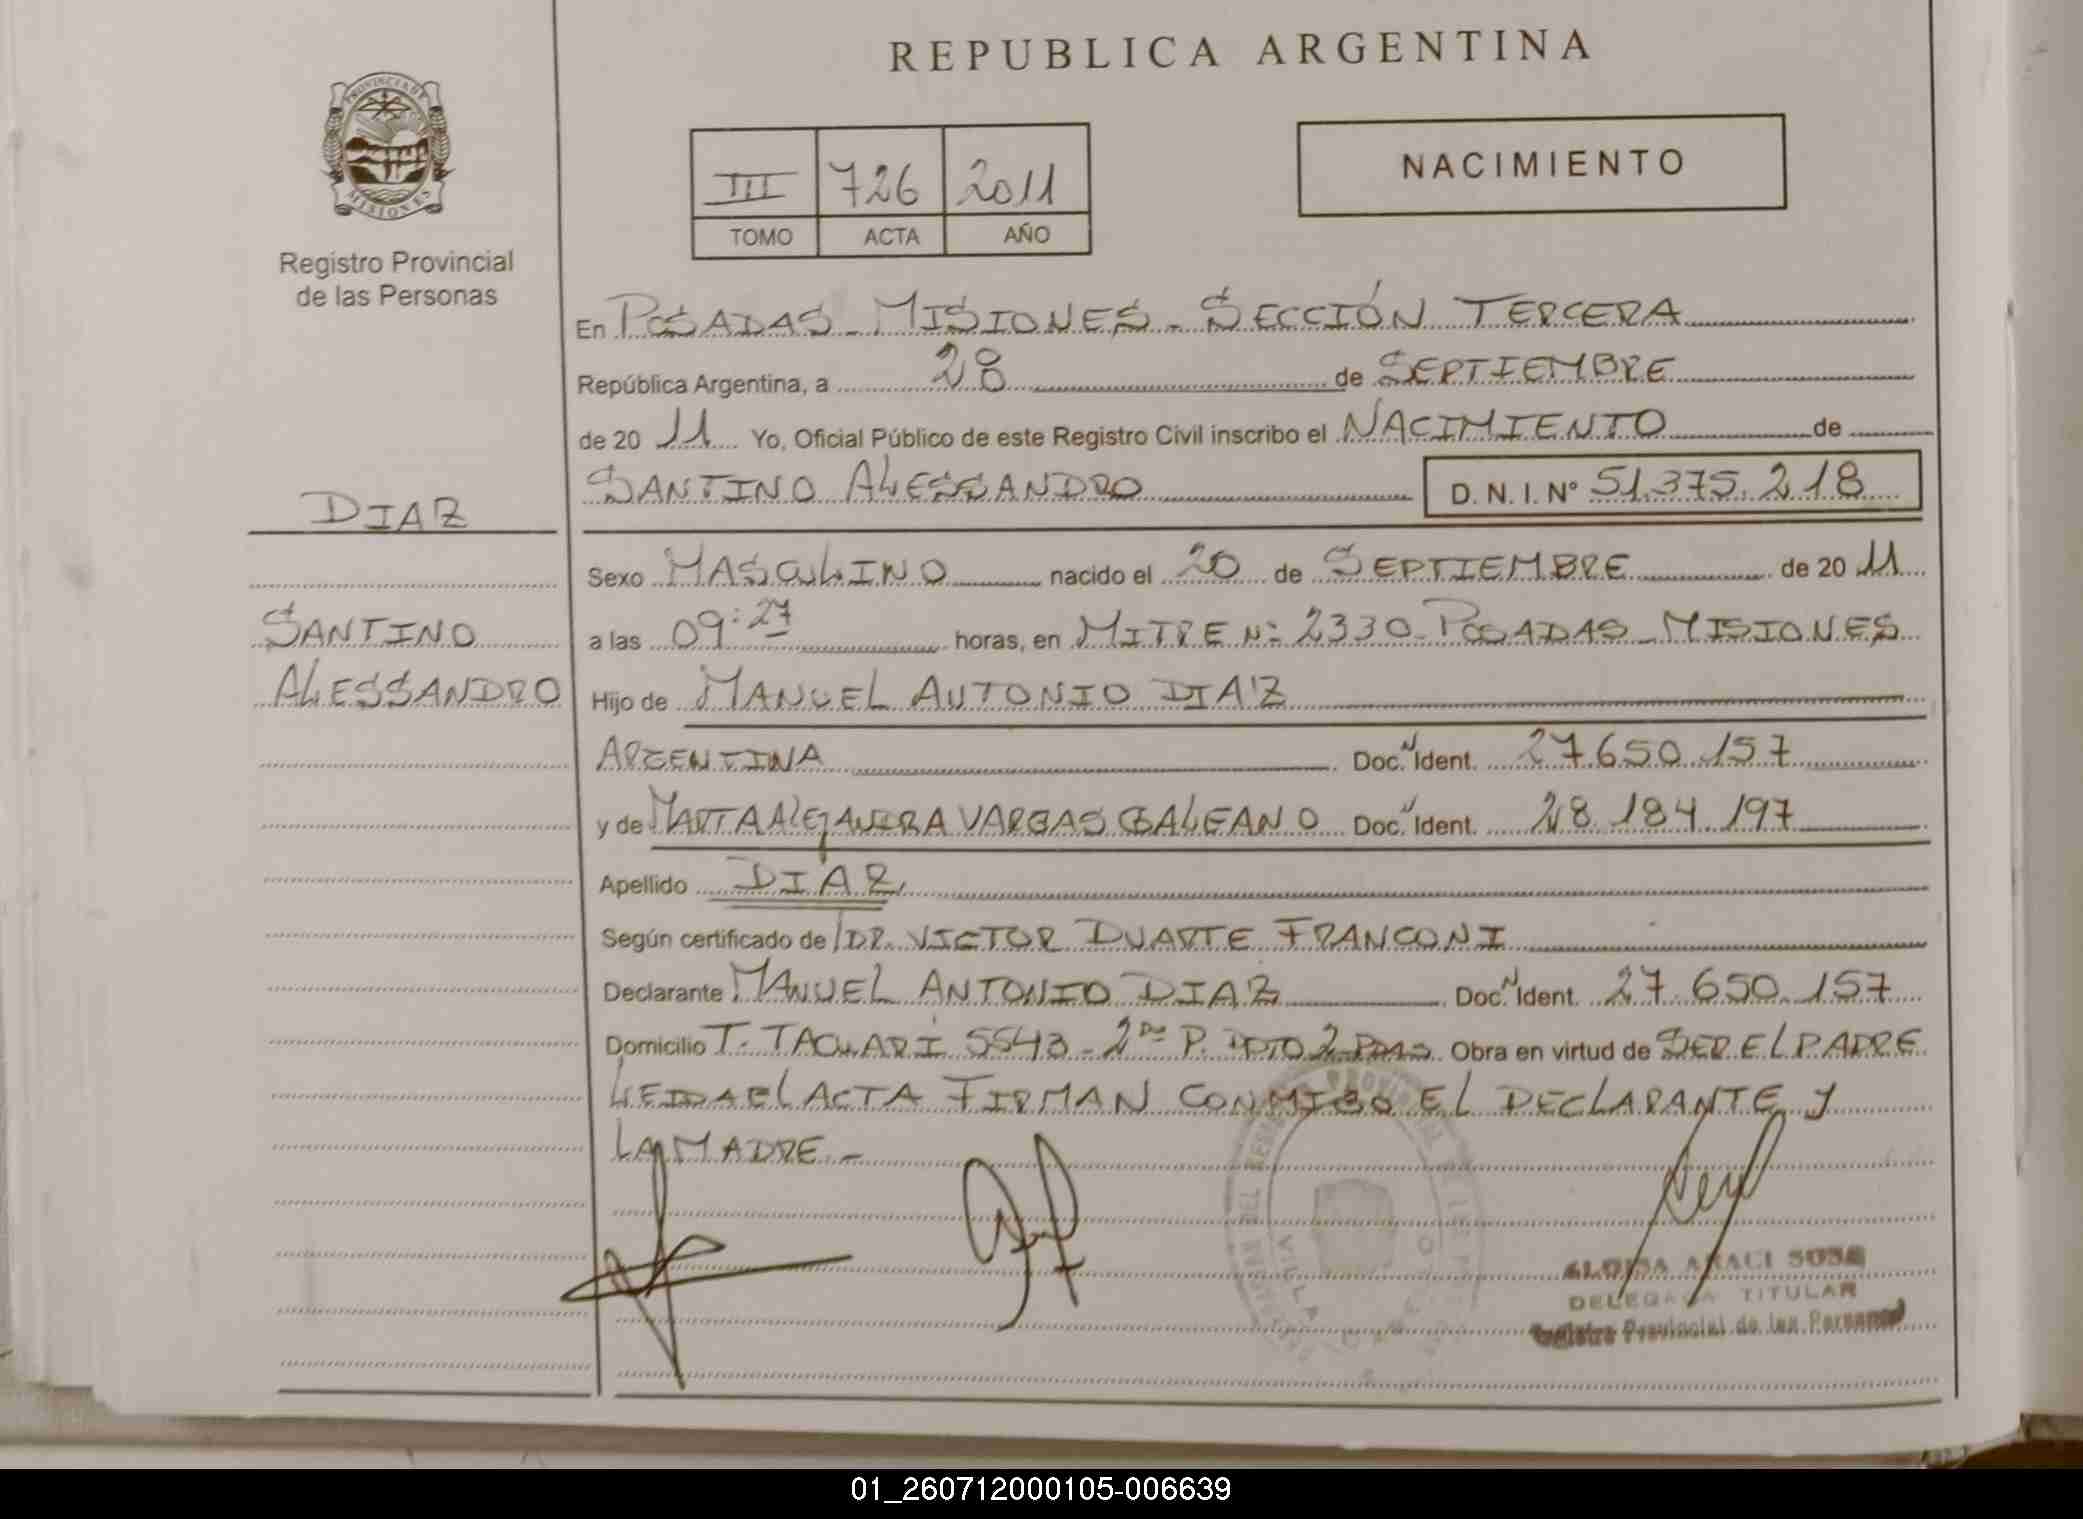 REPUBLICA ARGENTINA
PROVINCIA DE MISIONES
Registro Provincial
de las Personas
III 726 2011
TOMO ACTA AÑO
NACIMIENTO
En POSADAS - MISIONES - SECCIÓN TERCERA
República Argentina, a 28 de SEPTIEMBRE
de 20 11 Yo, Oficial Público de este Registro Civil inscribo el NACIMIENTO de
SANTINO ALESSANDRO D.N.I. Nº 51.375.218
DIAZ
SANTINO
ALESSANDRO
Sexo MASCULINO nacido el 20 de SEPTIEMBRE de 20 11
a las 09:27 horas, en MITRE Nº 2330 - POSADAS - MISIONES
Hijo de MANUEL ANTONIO DIAZ
ARGENTINA Doc. Ident. 27.650.157
y de MARTA ALEJANDRA VARGAS GALEANO Doc. Ident. 28.184.197
Apellido DIAZ
Según certificado de DR. VICTOR DUARTE FRANCONI
Declarante MANUEL ANTONIO DIAZ Doc. Ident. 27.650.157
Domicilio T. TACUARI 5543 - 2do P. DPTO 2 - PDAS Obra en virtud de SER EL PADRE
LEIDA EL ACTA FIRMAN CONMIGO EL DECLARANTE Y
LA MADRE -
ARACI SOSA
DELEGADA TITULAR
Registro Provincial de las Personas
01_260712000105-006639